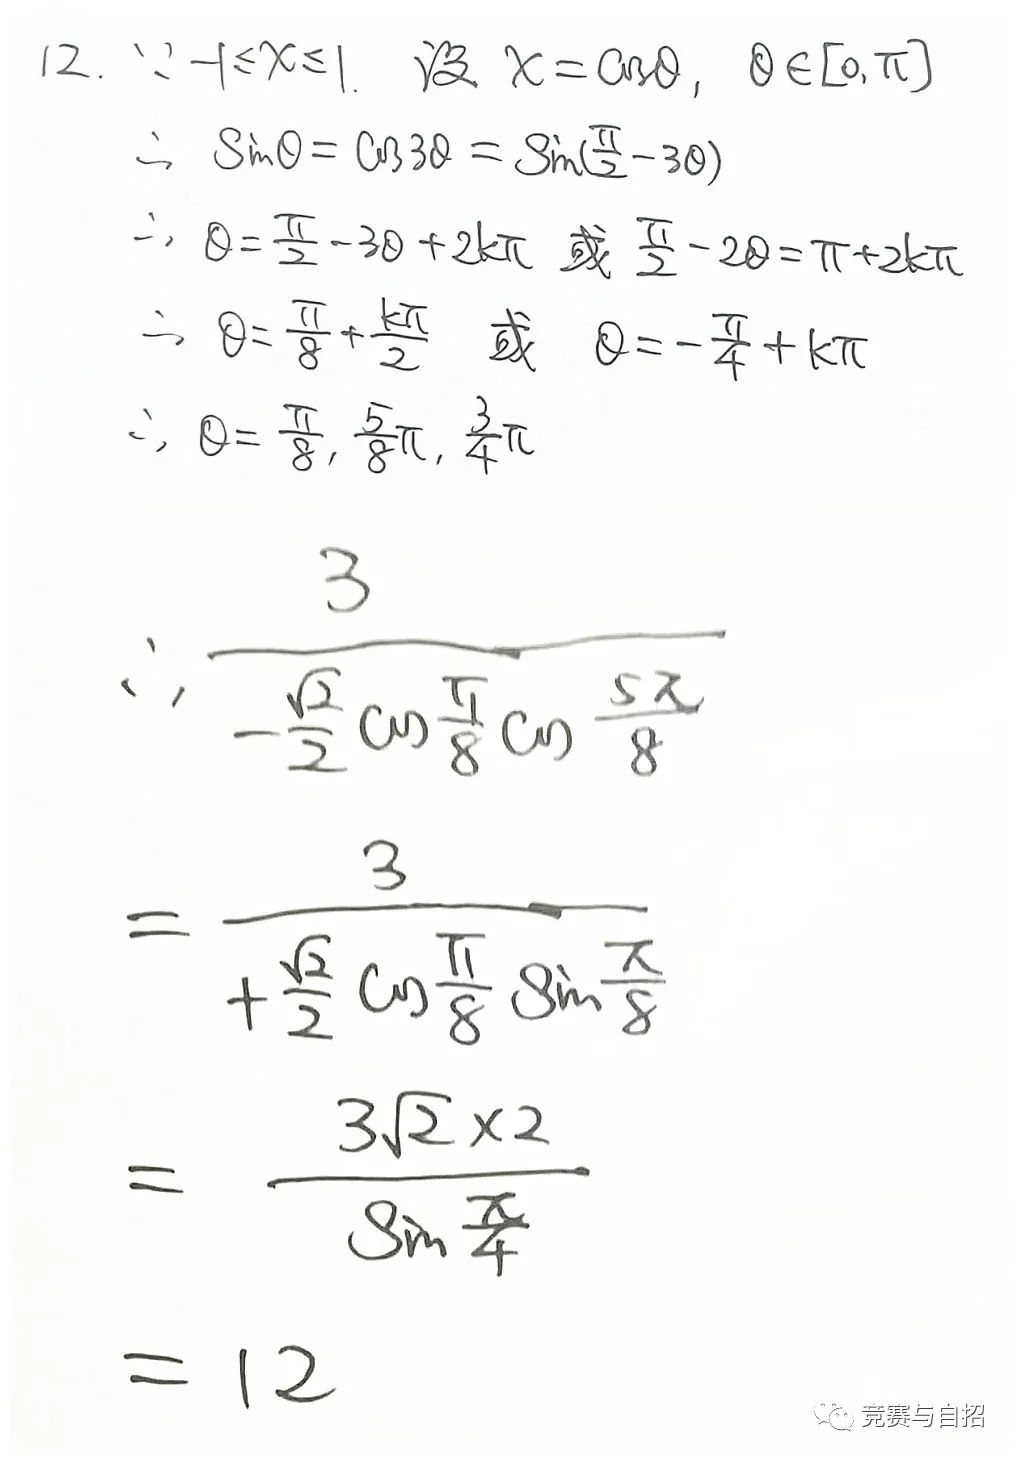 12. ∵ -1≤x≤1. 设 x=cosθ, θ∈[0,π]
∴ sinθ=cos3θ=sin(π/2-3θ)
∴ θ=π/2-3θ+2kπ 或 π/2-2θ=π+2kπ
∴ θ=π/8+kπ/2 或 θ=-π/4+kπ
∴ θ=π/8, 5/8π, 3/4π
∴ 3/(-√2/2 cos π/8 cos 5π/8)
= 3/(+√2/2 cos π/8 sin π/8)
= 3√2×2/(sin π/4)
= 12
竞赛与自招